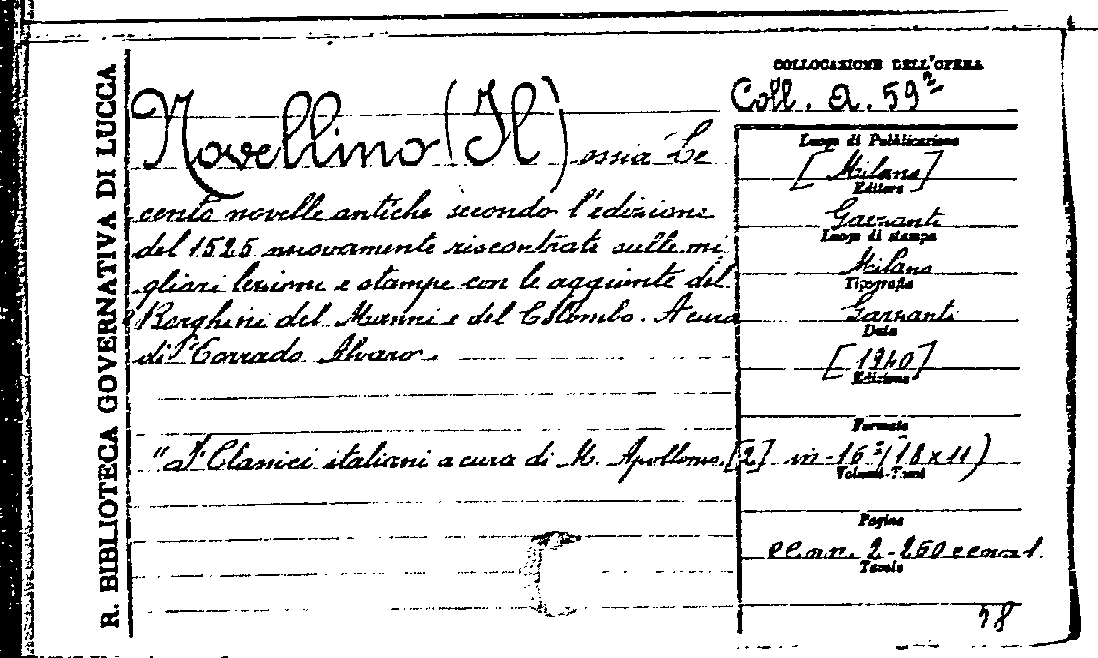 R. BIBLIOTECA GOVERNATIVA DI LUCCA
COLLOCAZIONE DELL'OPERA
Coll. A. 59²
Novellino (Il) ossia Le
cento novelle antiche secondo l'edizione
del 1525 nuovamente riscontrate sulle mi
gliori lezioni e stampe con le aggiunte del
Borghini del Manni e del Colombo. A cura
di Corrado Alvaro.
"I Classici italiani a cura di M. Apollonio. [2]
Luogo di Pubblicazione
[Milano]
Editore
Garzanti
Luogo di stampa
Milano
Tipografia
Garzanti
Data
[1940]
Edizione
Formato
in-16° (18x11)
Volumi-Tomi
Pagine
2-260
Tavole
78